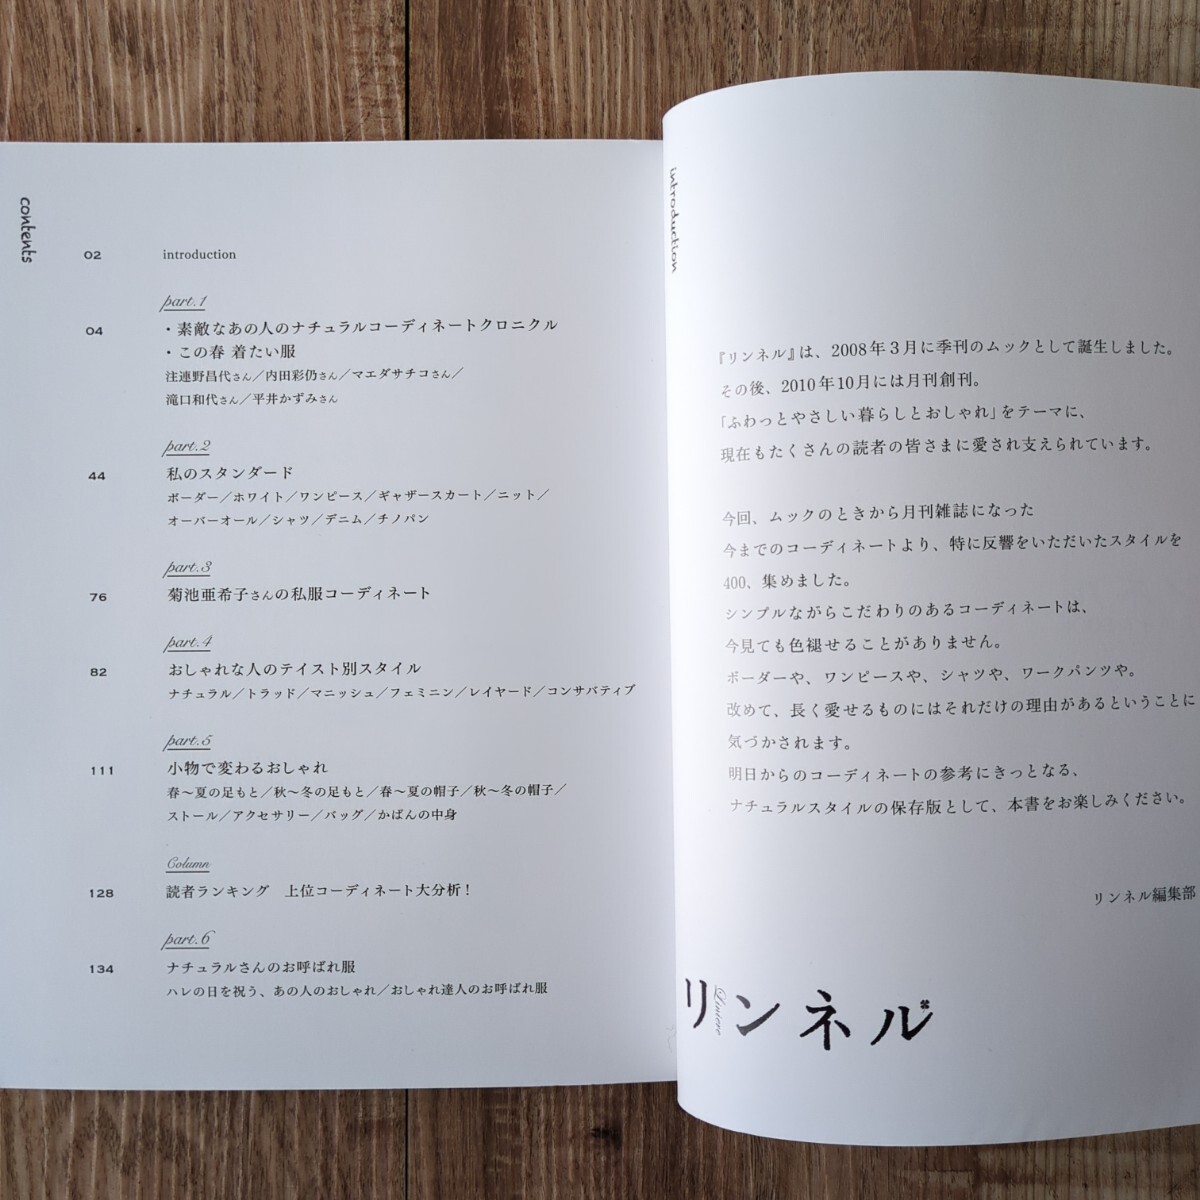 contents
02 introduction
part.1
04 ・素敵なあの人のナチュラルコーディネートクロニクル
・この春 着たい服
注連野昌代さん／内田彩仍さん／マエダサチコさん／
滝口和代さん／平井かずみさん
part.2
44 私のスタンダード
ボーダー／ホワイト／ワンピース／ギャザースカート／ニット／
オーバーオール／シャツ／デニム／チノパン
part.3
76 菊池亜希子さんの私服コーディネート
part.4
82 おしゃれな人のテイスト別スタイル
ナチュラル／トラッド／マニッシュ／フェミニン／レイヤード／コンサバティブ
part.5
111 小物で変わるおしゃれ
春〜夏の足もと／秋〜冬の足もと／春〜夏の帽子／秋〜冬の帽子／
ストール／アクセサリー／バッグ／かばんの中身
Column
128 読者ランキング　上位コーディネート大分析！
part.6
134 ナチュラルさんのお呼ばれ服
ハレの日を祝う、あの人のおしゃれ／おしゃれ達人のお呼ばれ服
introduction
『リンネル』は、2008年3月に季刊のムックとして誕生しました。
その後、2010年10月には月刊創刊。
「ふわっとやさしい暮らしとおしゃれ」をテーマに、
現在もたくさんの読者の皆さまに愛され支えられています。
今回、ムックのときから月刊雑誌になった
今までのコーディネートより、特に反響をいただいたスタイルを
400、集めました。
シンプルながらこだわりのあるコーディネートは、
今見ても色褪せることがありません。
ボーダーや、ワンピースや、シャツや、ワークパンツや。
改めて、長く愛せるものにはそれだけの理由があるということに
気づかされます。
明日からのコーディネートの参考にきっとなる、
ナチュラルスタイルの保存版として、本書をお楽しみください。
リンネル編集部
リンネル
Liniere